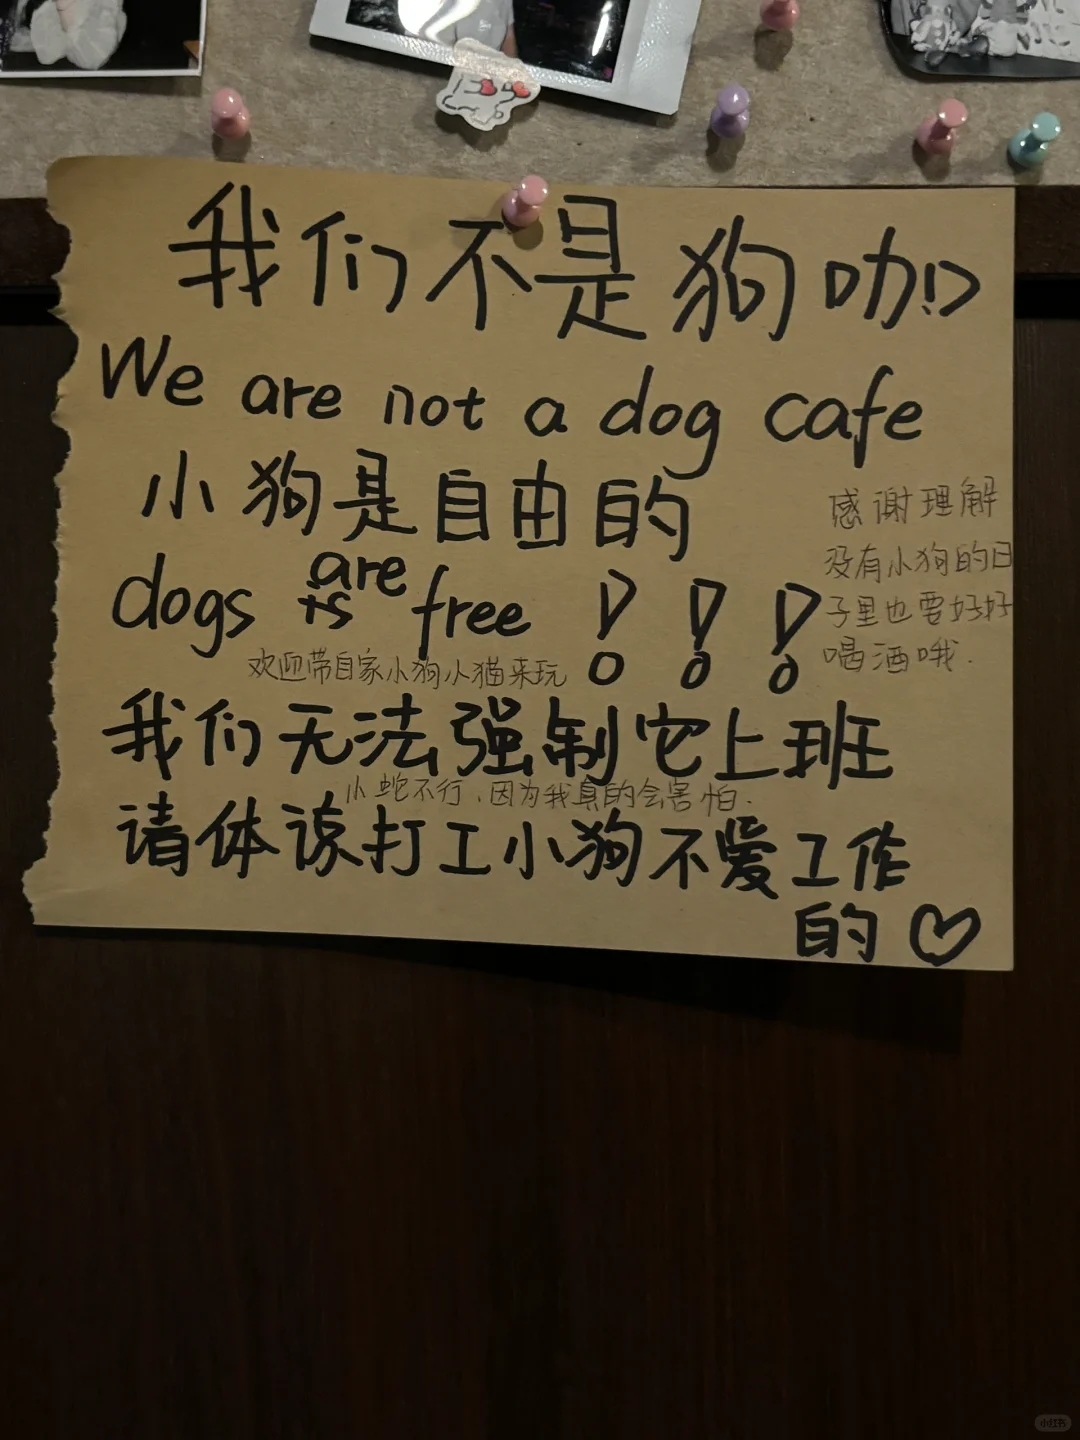 我们不是狗咖!
We are not a dog cafe
小狗是自由的
dogs are free !!!
欢迎带自家小狗小猫来玩
感谢理解
没有小狗的日
子里也要好好
喝酒哦.
我们无法强制它上班
小蛇不行、因为我真的会害怕.
请体谅打工小狗不爱工作
的♡
小红书